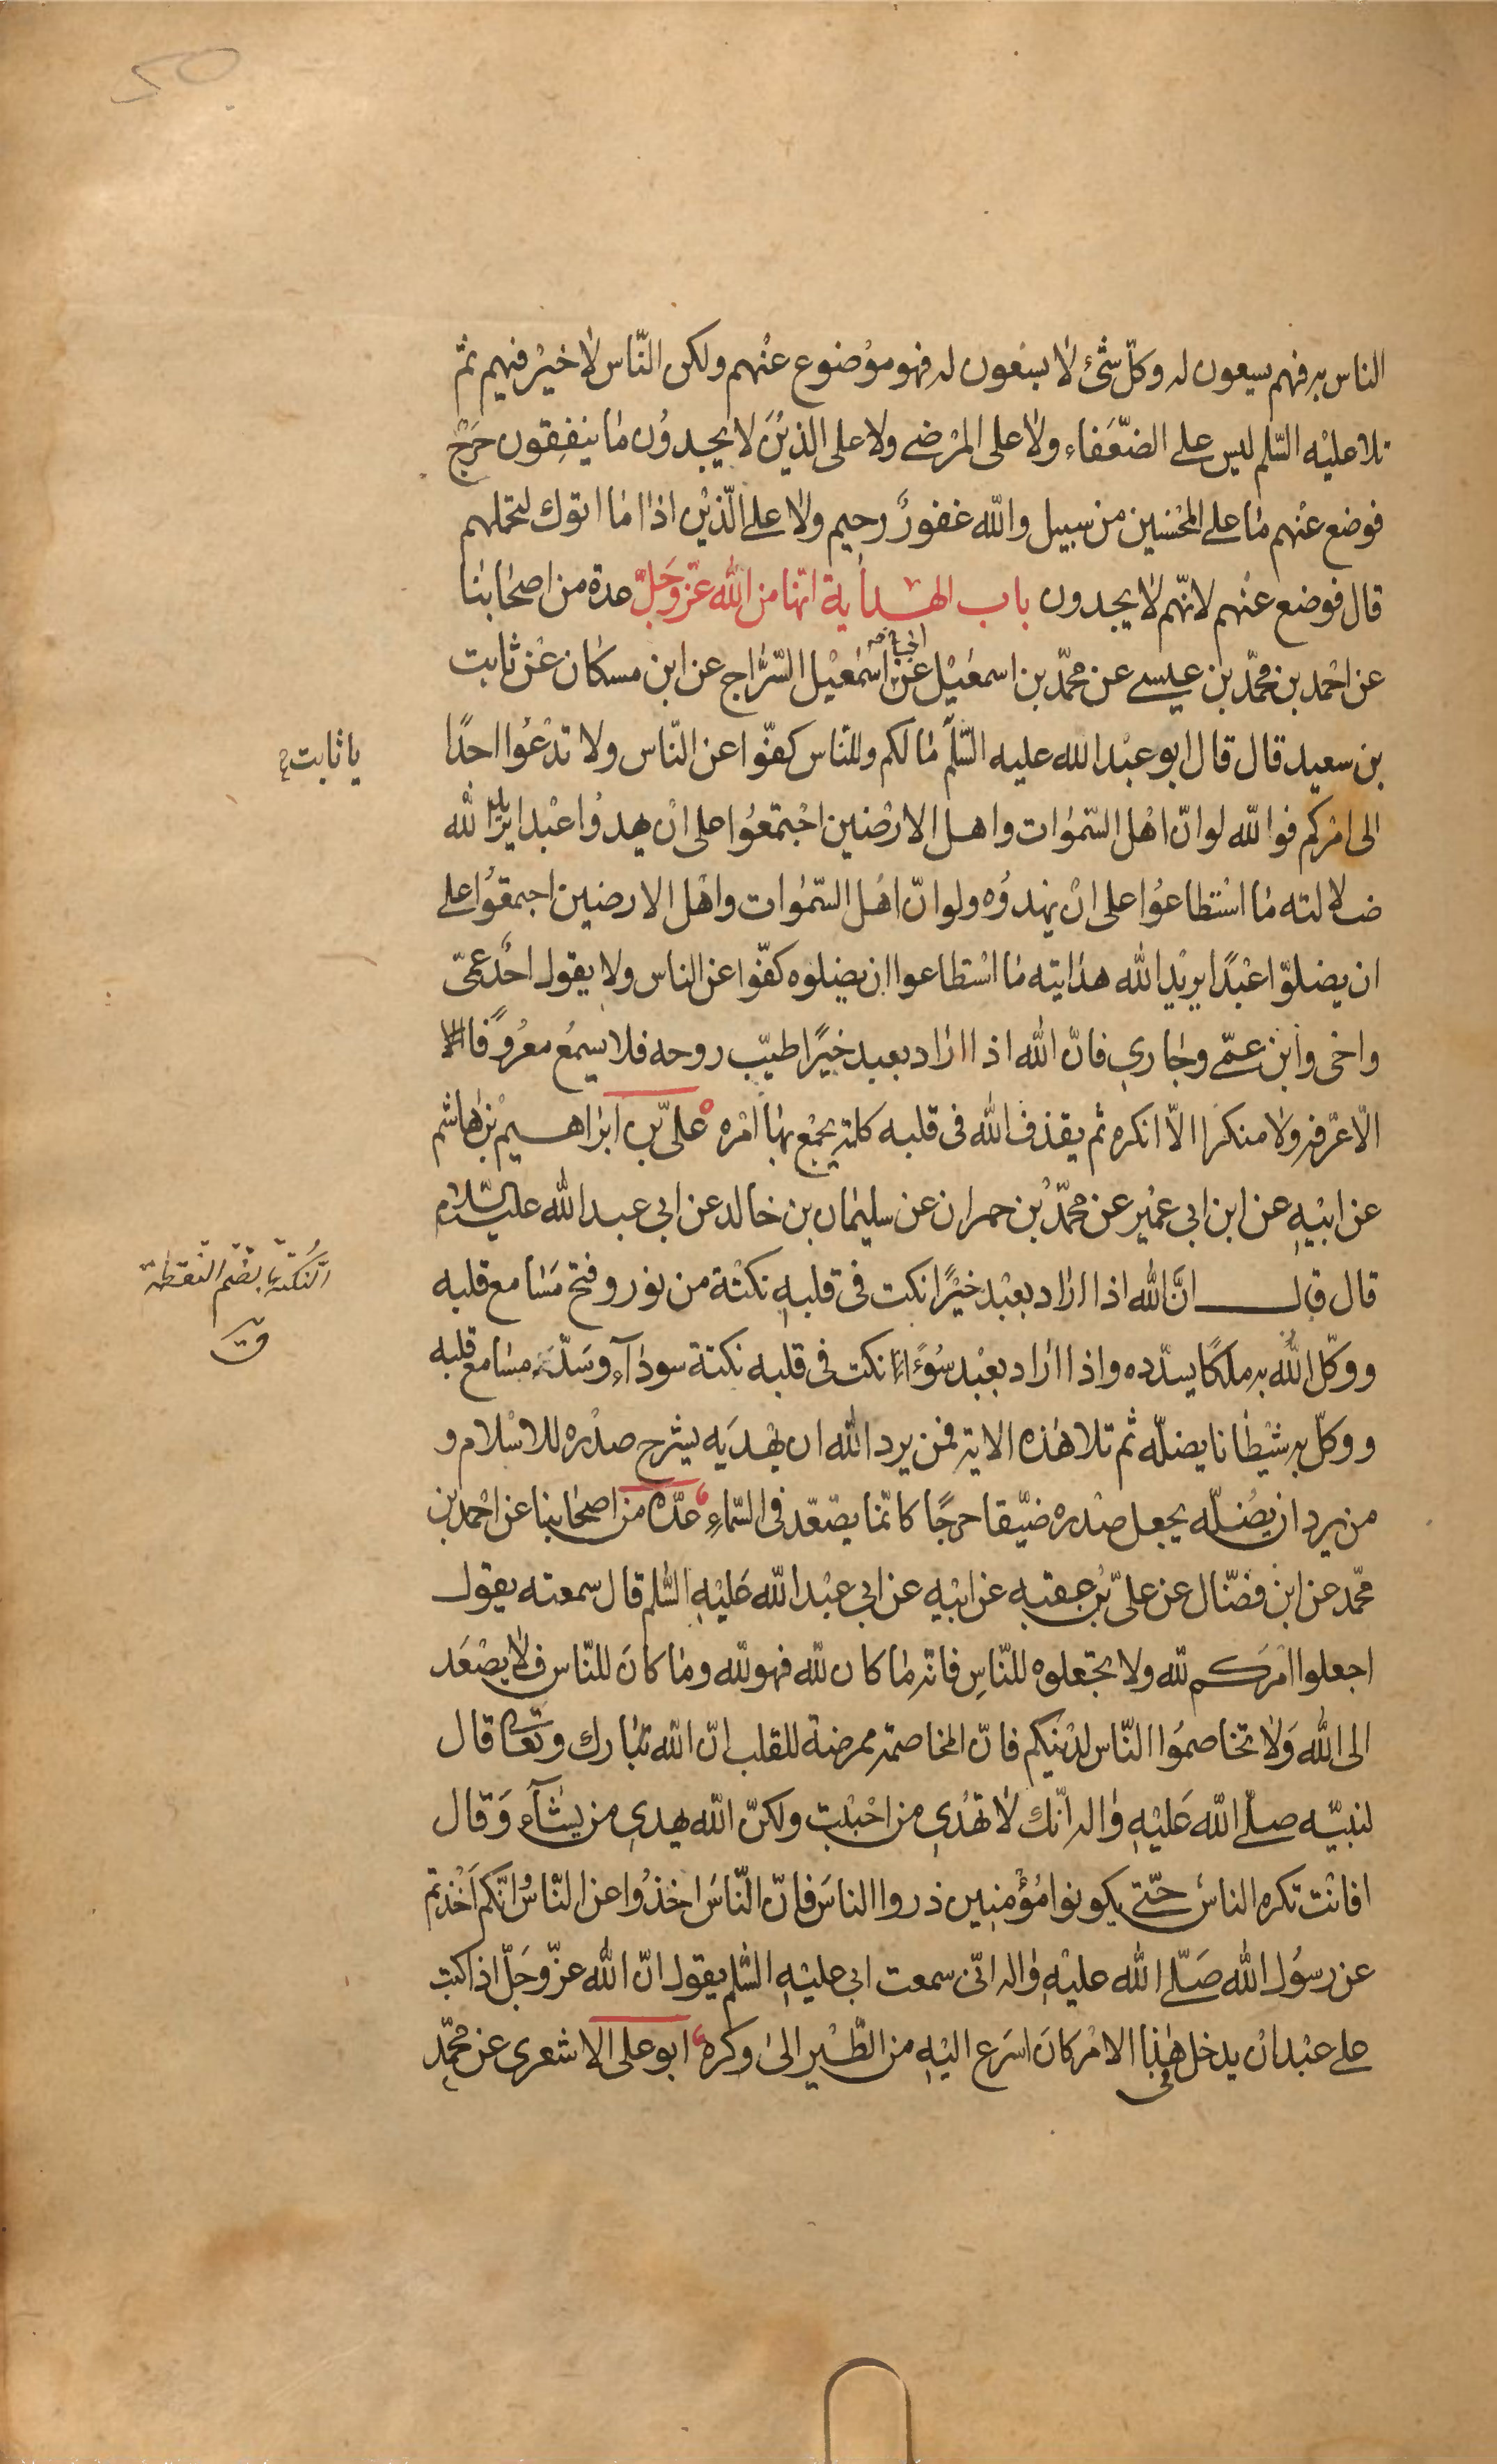 الناس به فهم يسعون له وكلّ شئ لا يسعون له فهو موضوع عنهم ولكن النّاس لا خير فيهم ثمّ
تلا عليه السّلم ليس على الضّعفاء ولا على المرضى ولا على الذين لا يجدون ما ينفقون حرج
فوضع عنهم ما على المحسنين من سبيل والله غفور رحيم ولا على الّذين اذا ما اتوك لتحملهم
قال فوضع عنهم لانّهم لا يجدون باب الهداية انّها من الله عزّ وجلّ عدة من اصحابنا
عن احمد بن محمّد بن عيسى عن محمّد بن اسمعيل عن اسمعيل السّرّاج عن ابن مسكان عن ثابت
بن سعيد قال قال ابو عبد الله عليه السّلم ما لكم وللنّاس كفّوا عن النّاس ولا تدعوا احدًا
يا ثابت
الى امركم فوالله لو انّ اهل السّموات واهل الارضين اجتمعوا على ان يهدوا عبدا يريد الله
ضلالته ما استطاعوا على ان يهدوه ولو انّ اهل السّموات واهل الارضين اجتمعوا على
ان يضلّوا عبدًا يريد الله هدايته ما استطاعوا ان يضلوه كفّوا عن الناس ولا يقول احد عمّى
واخى وابن عمّى وجارى فانّ الله اذا اراد بعبد خيرًا طيّب روحه فلا يسمع معروفًا الا
الّا عرفه ولا منكرا الاّ انكره ثم يقذف الله فى قلبه كلمة يجمع بها امره علىّ بن ابراهيم بن هاشم
عن ابيه عن ابن ابى عمير عن محمّد بن حمران عن سليمان بن خالد عن ابى عبد الله عليه السّلام
قال قال انّ الله اذا اراد بعبد خيرًا نكت فى قلبه نكتة من نور وفتح مسامع قلبه
النُّكتة بالضّم النقطة
ق
ووكّل الله به ملكًا يسدّده واذا اراد بعبد سوءًا نكت فى قلبه نكتة سودآء وسدّ مسامع قلبه
ووكّل به شيطانا يضلّه ثم تلا هذه الاية فمن يرد الله ان يهديه يشرح صدره للاسلام و
من يرد ان يضلّه يجعل صدره ضيّقا حرجًا كانّما يصّعّد فى السّماء عدّة من اصحابنا عن احمد بن
محمّد عن ابن فضّال عن علىّ بن عقبه عن ابيه عن ابى عبد الله عليه السّلم قال سمعته يقول
اجعلوا امركم لله ولا تجعلوه للنّاس فانّه ما كان لله فهو لله وما كان للنّاس فلا يصعد
الى الله ولا تخاصموا النّاس لدينكم فانّ المخاصمة ممرضة للقلب انّ الله تبارك وتعالى قال
لنبيّه صلّى الله عليه واله انّك لا تهدى من احببت ولكنّ الله يهدى من يشآء وقال
افانت تكره الناس حتّى يكونوا مؤمنين ذروا الناس فانّ النّاس اخذوا عن النّاس وانّكم اخذتم
عن رسول الله صلّى الله عليه واله انّى سمعت ابى عليه السّلم يقول انّ الله عزّ وجلّ اذا كتب
على عبد ان يدخل فى هذا الامر كان اسرع اليه من الطّير الى وكره ابو على الاشعرى عن محمّد